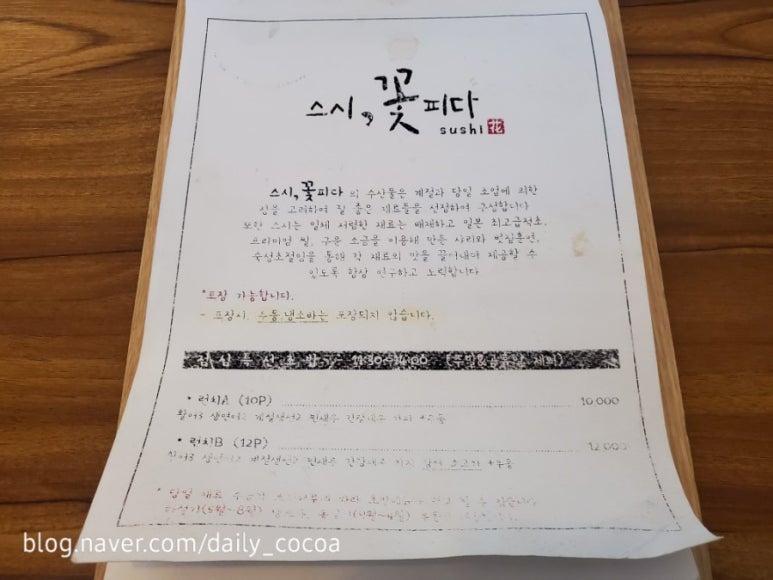 스시, 꽃 피다
sushi 花
스시, 꽃피다 의 수산물은 계절과 당일 조업에 의한
선을 고려하여 질 좋은 재료들을 선정하여 구성합니다
또한 스시는 일체 저렴한 재료는 배제하고 일본 최고급적초,
프리미엄 쌀, 구운 소금을 이용해 만든 샤리와 볏짚훈연,
숙성초절임을 통해 각 재료의 맛을 끌어내어 제공할 수
있도록 항상 연구하고 노력합니다
*포장 가능합니다.
- 포장시, 우동,냉소바는 포장되지 않습니다.
점심특선초밥 11:30~14:00 (주말&공휴일 제외)
• 런치A (10P) 10,000
광어3 생연어2 계절생선2 간장새우 +우동
• 런치B (12P) 12,000
간장새우 +우동
* 당일 재료 수급
(5월~8월)
blog.naver.com/daily_cocoa